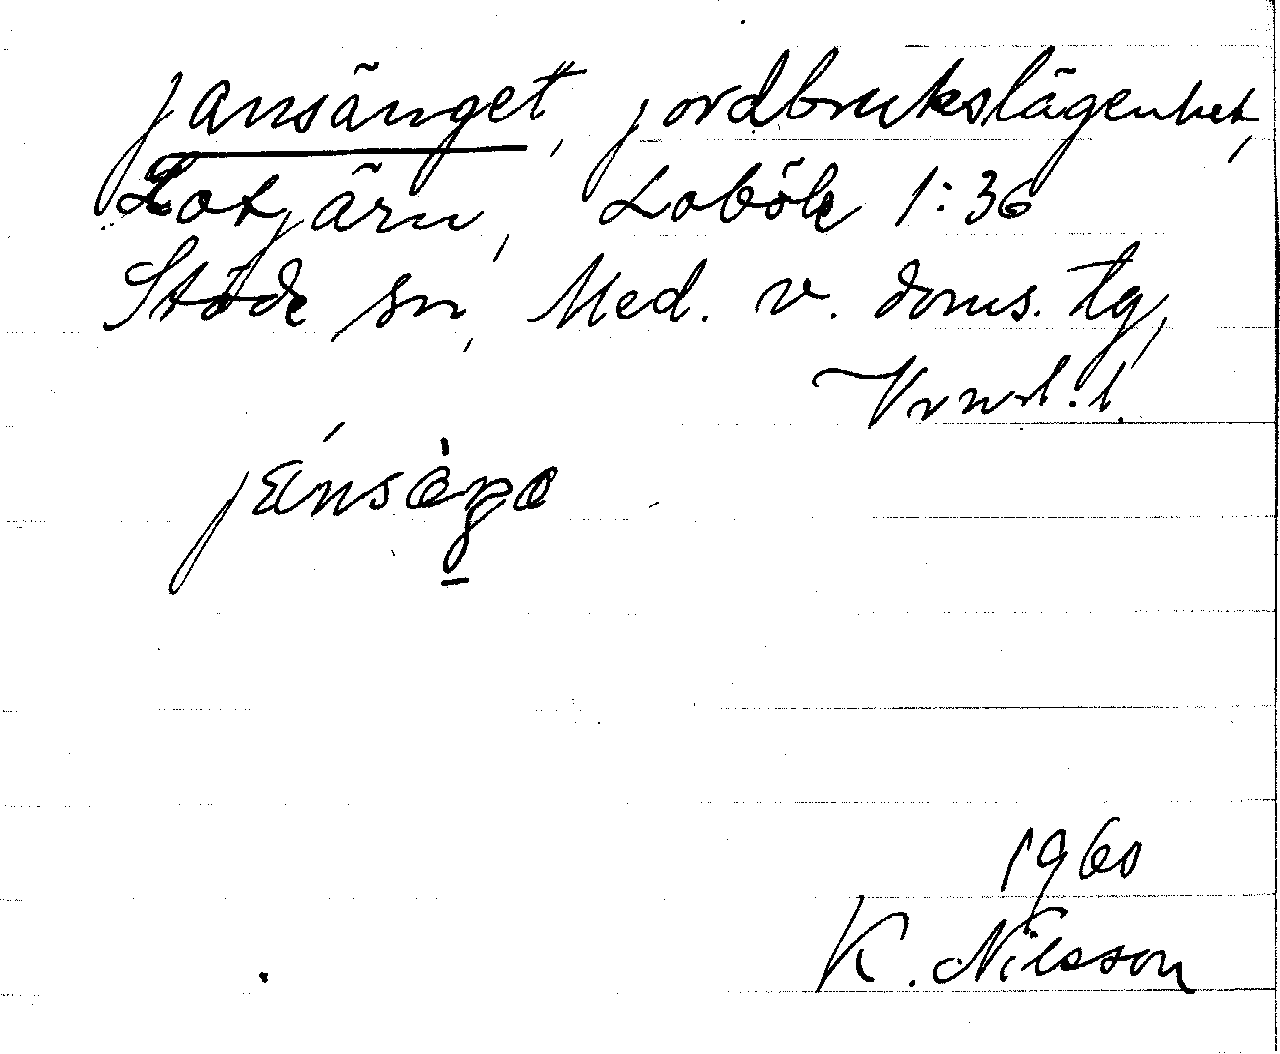 Jansänget, jordbrukslägenhet,
Lotjärn, Loböle 1:36
Stöde sn, Med. v. doms. tg,
Vrnl. l.
1960
K. Nilsson